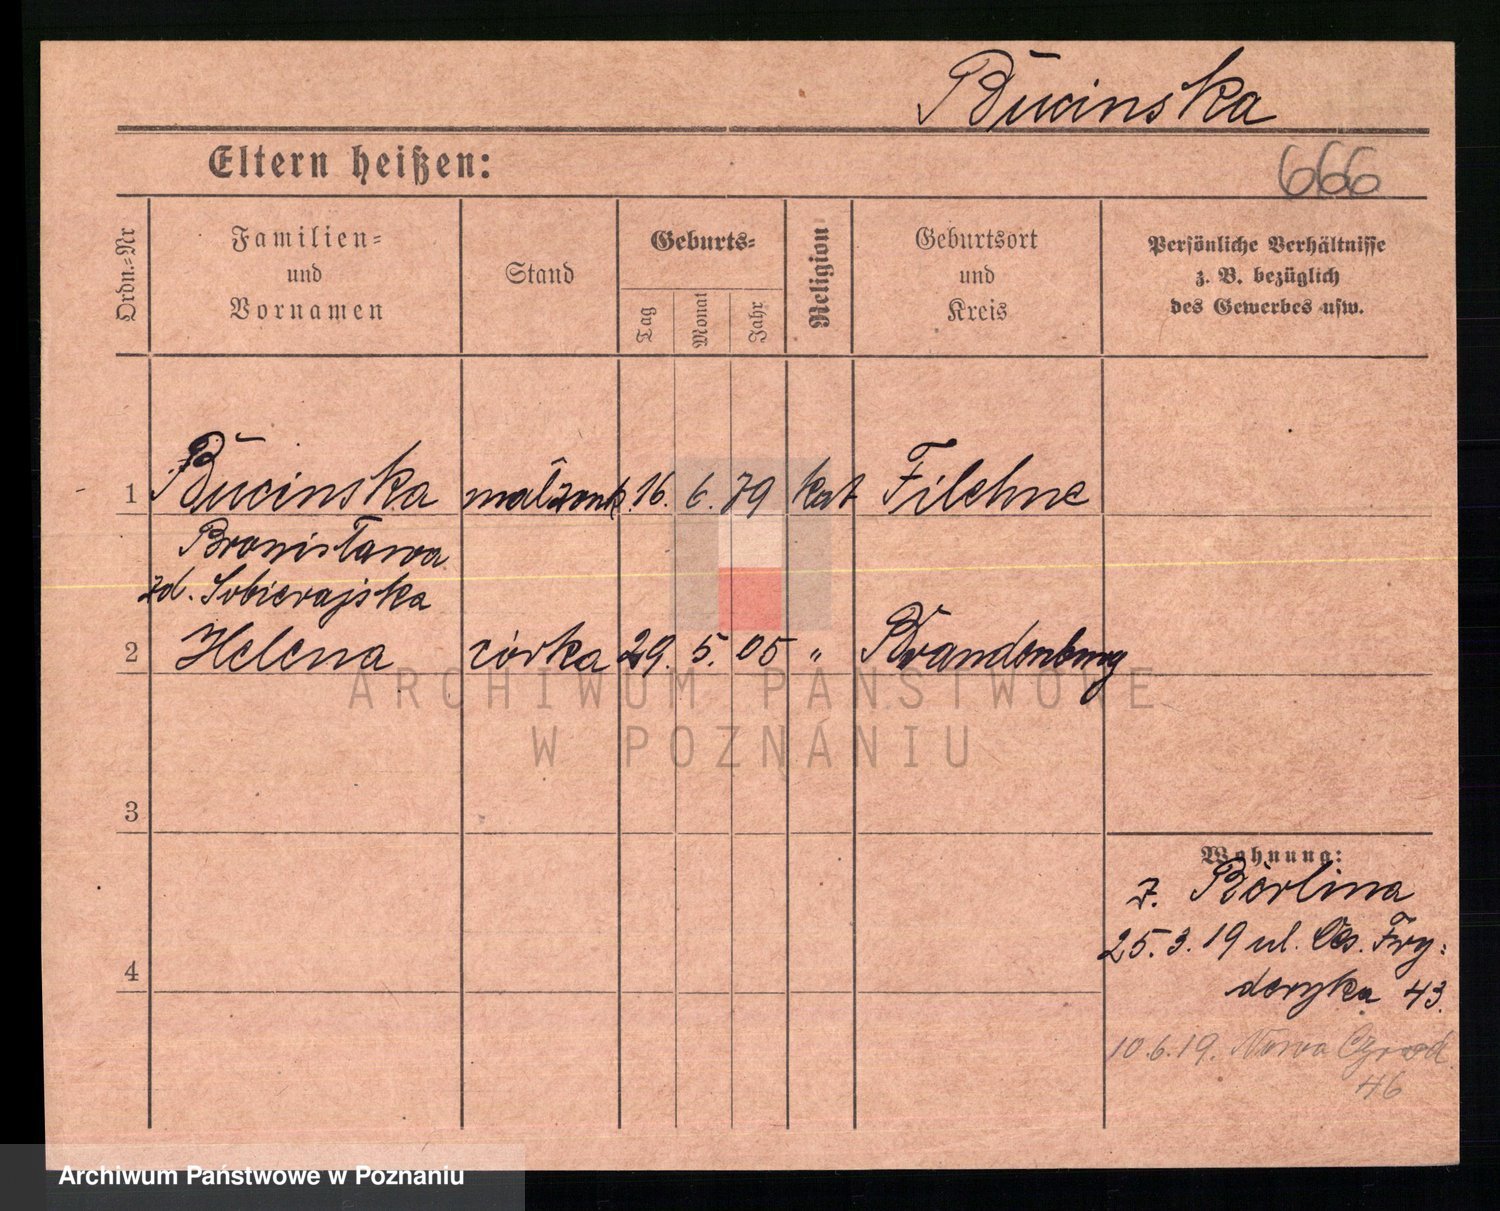 Bucinska
Eltern heißen:
666
Ordn.-Nr
Familien-
und
Vornamen
Stand
Geburts-
Tag
Monat
Jahr
Religion
Geburtsort
und
Kreis
Persönliche Verhältnisse
z. B. bezüglich
des Gewerbes usw.
1 Bucinska małżonk. 16. 6. 79 kat Filehne
Bronisława
zd. Sobierajska
2 Helena córka 29. 5. 05 " Brandenburg
ARCHIWUM PAŃSTWOWE
W POZNANIU
3
Wohnung:
z. Berlina
25.3.19 ul. Ces. Fry-
deryka 43.
4
10.6.19. Nowa Ogrod
46
Archiwum Państwowe w Poznaniu